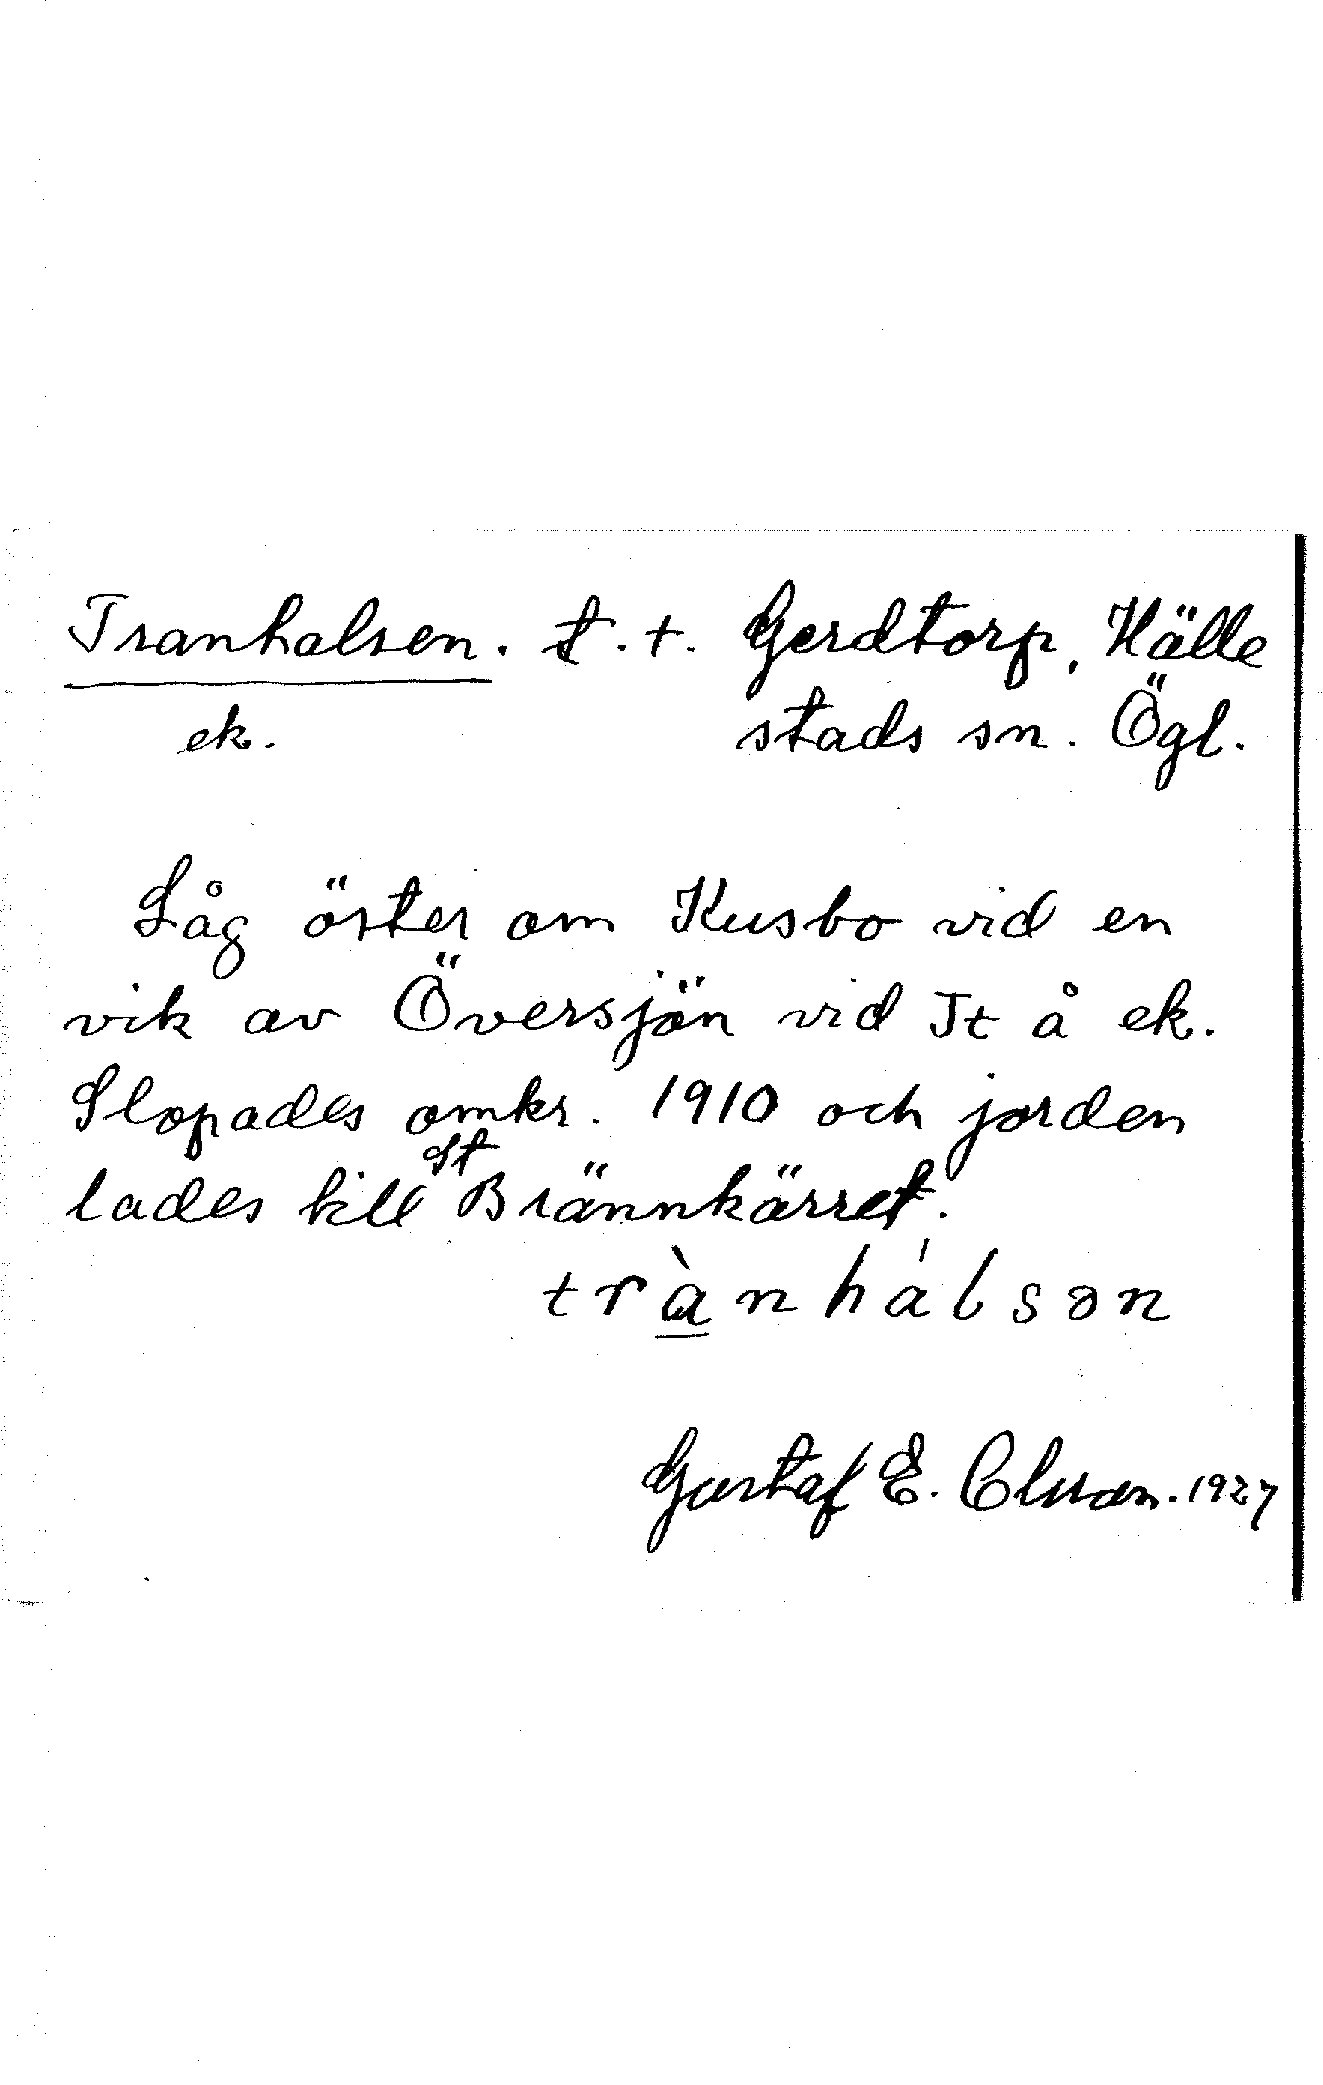 Tranhalsen. t. t. Gerdtorp, Hälle
ek. stads sn. Ögl.
Låg öster om Kusbo vid en
vik av Översjön vid It å ek.
Slopades omkr. 1910 och jorden
lades till St Brännkärret.
trànhálsən
Gustaf E. Olsson. 1927